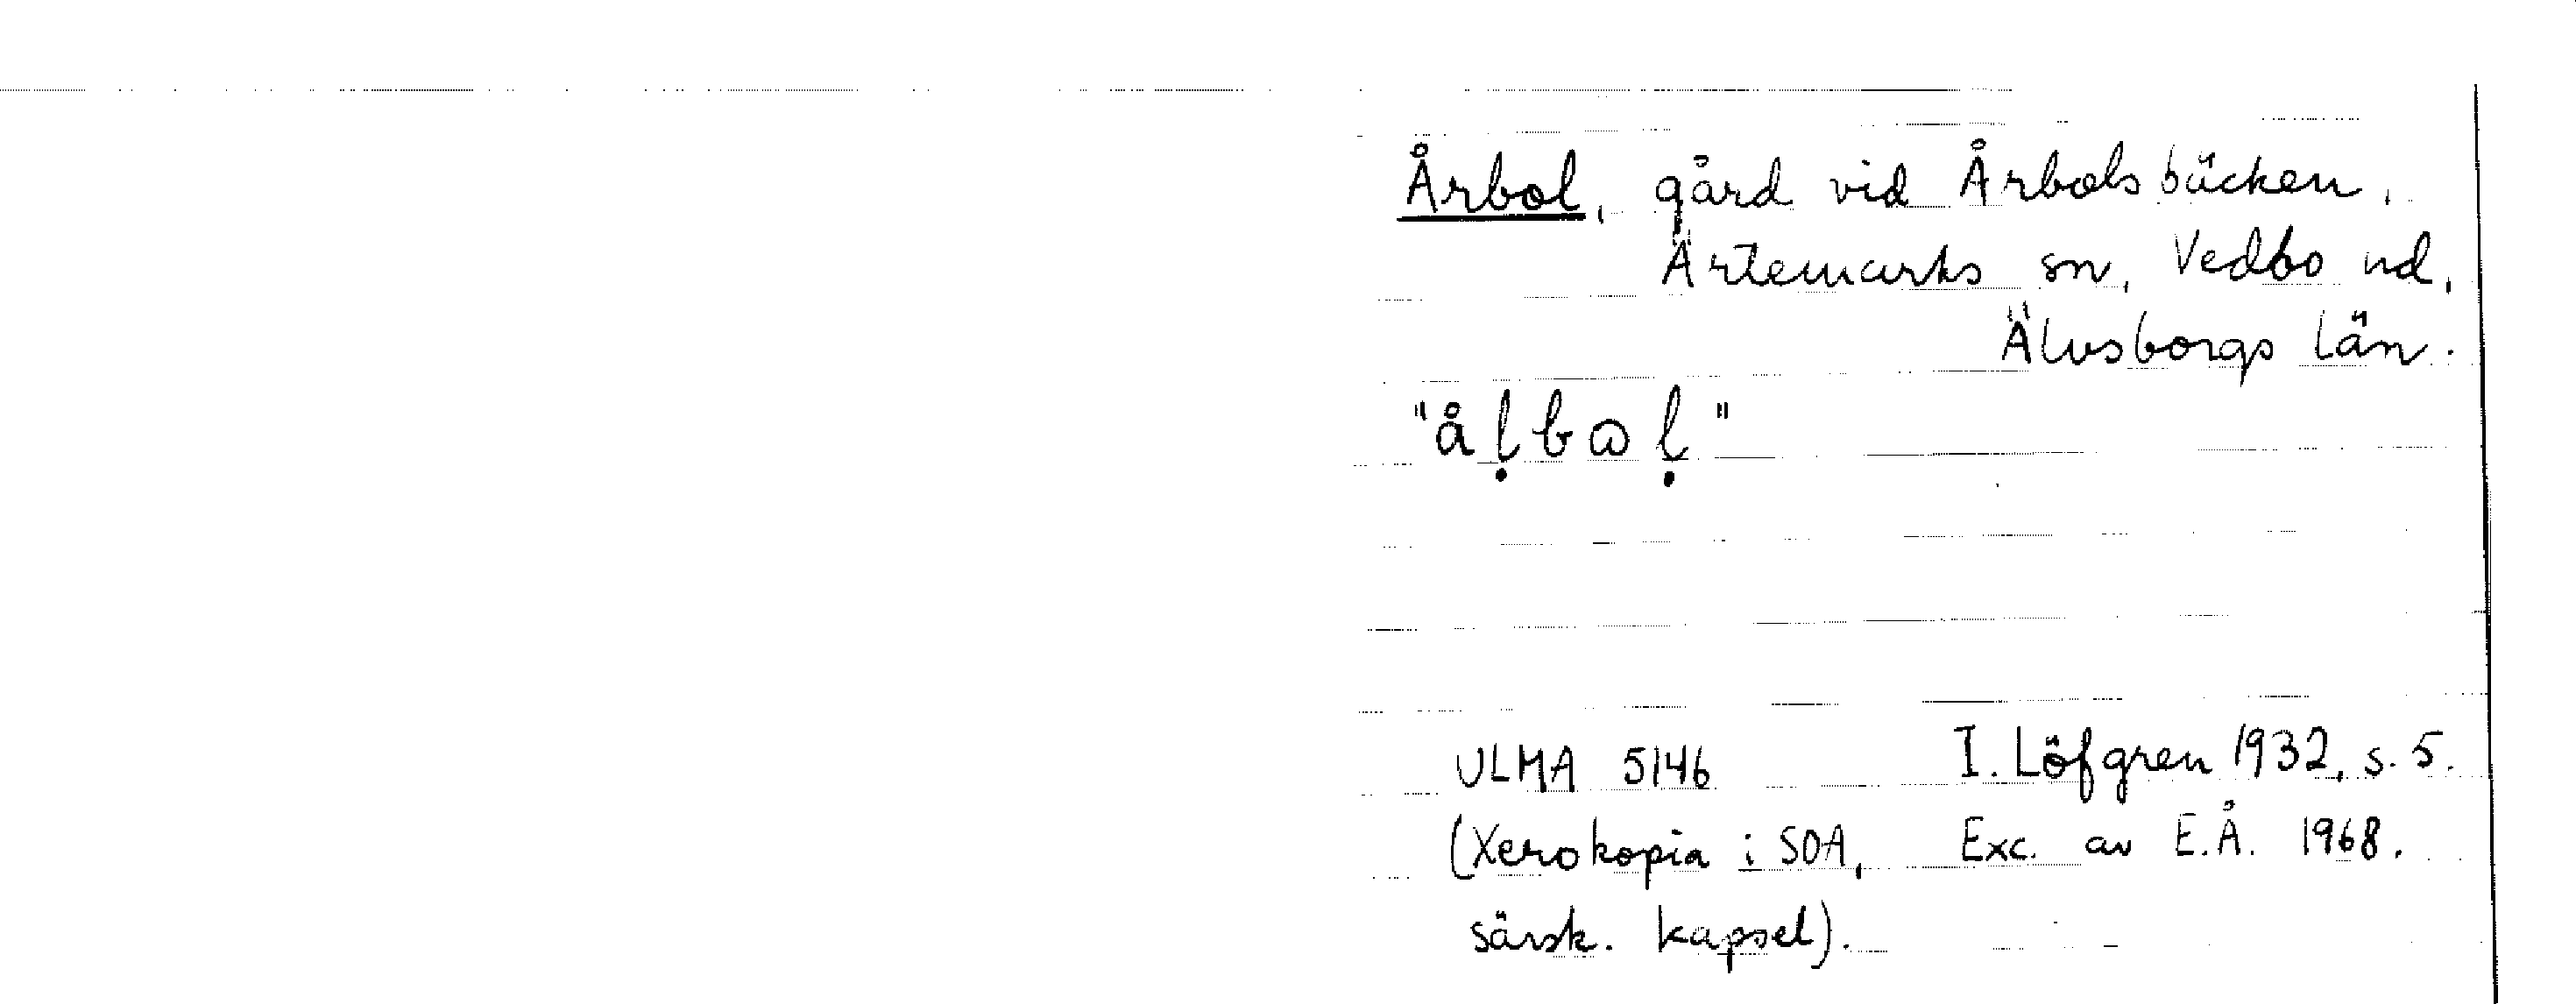 Årbol, gård vid Årbolsbäcken,
Ärtemarks sn, Vedbo hd,
Älvsborgs län.
"åḷbωḷ"
ULMA 5146 I. Löfgren 1932, s. 5.
(Xerokopia i SOA, Exc. av E.Å. 1968.
särsk. kapsel).